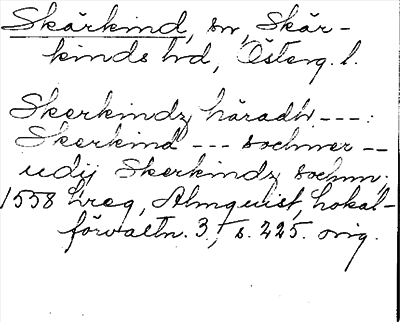 Skärkind, sn, Skär-
kinds hd, Österg. l.
Skerkindz häradh ---:
Skerkind --- sochner --
udij Skerkindz sochnn;
1558 Lreg, Almquist, Lokal-
förvaltn. 3, s. 225. orig.